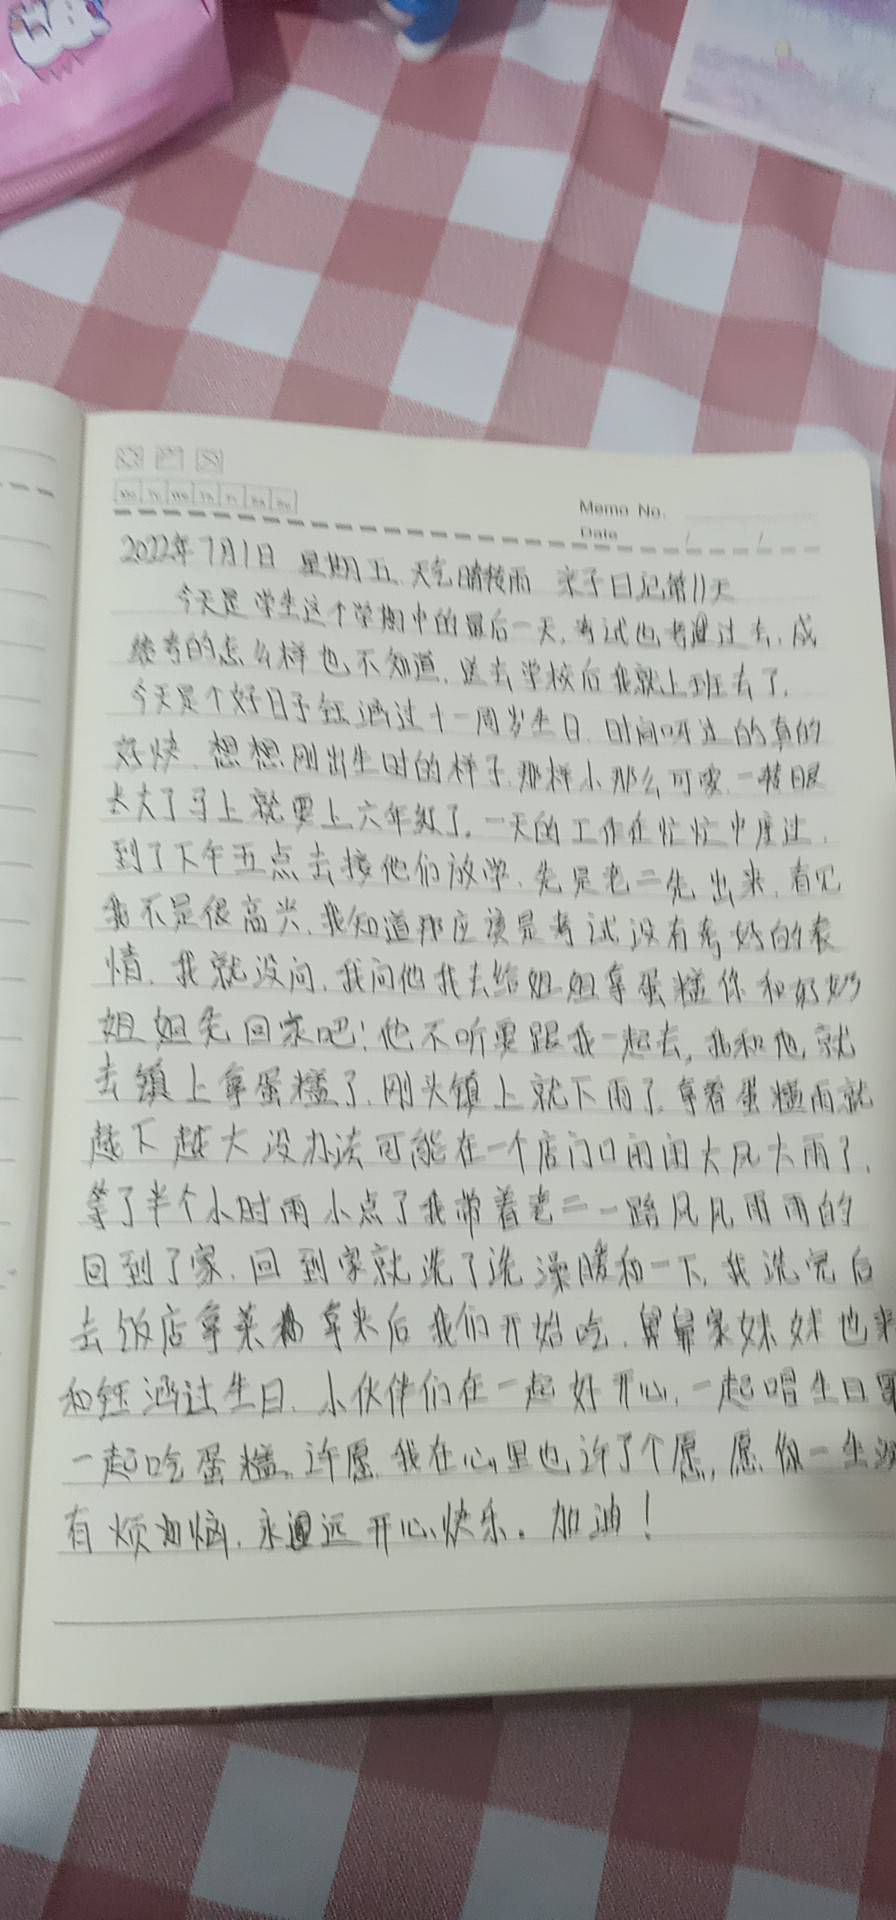 Mo Tu We Th Fr Sa Su
Memo No.
Date / /
2022年7月1日 星期五 天气晴转雨 亲子日记第11天
今天是学生这个学期中的最后一天,考试也考过去,成
绩考的怎么样也不知道,送去学校后我就上班去了,
今天是个好日子钰涵过十一周岁生日,时间呀过的真的
好快,想想刚出生时的样子,那样小那么可爱,一转眼
长大了马上就要上六年级了,一天的工作在忙忙中度过,
到了下午五点去接他们放学,先是老二先出来,看见
我不是很高兴,我知道那应该是考试没有考好的表
情,我就没问,我问他我去给姐姐拿蛋糕你和奶奶
姐姐先回家吧!他不听要跟我一起去,我和他就
去镇上拿蛋糕了,刚头镇上就下雨了,拿着蛋糕雨就
越下越大没办法可能在一个店门口闹闹大风大雨了,
等了半个小时雨小点了我带着老二一路风风雨雨的
回到了家,回到家就洗了洗澡暖和一下,我洗完后
去饭店拿菜拿来后我们开始吃,舅舅家妹妹也来
和钰涵过生日,小伙伴们在一起好开心,一起唱生日
一起吃蛋糕。许愿,我在心里也许了个愿,愿你一生没
有烦恼,永远开心快乐。加油!